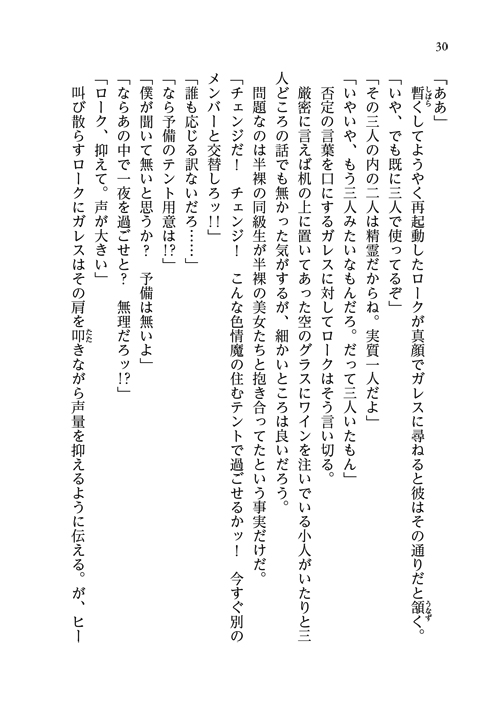 30
「ああ」
暫くしてようやく再起動したロークが真顔でガレスに尋ねると彼はその通りだと頷く。
しばら
うなず
「いや、でも既に三人で使ってるぞ」
「その三人の内の二人は精霊だからね。実質一人だよ」
「いやいや、もう三人みたいなもんだろ。だって三人いたもん」
否定の言葉を口にするガレスに対してロークはそう言い切る。
厳密に言えば机の上に置いてあった空のグラスにワインを注いでいる小人がいたりと三
人どころの話でも無かった気がするが、細かいところは良いだろう。
問題なのは半裸の同級生が半裸の美女たちと抱き合ってたという事実だけだ。
「チェンジだ! チェンジ! こんな色情魔の住むテントで過ごせるかッ! 今すぐ別の
メンバーと交替しろッ!!」
「誰も応じる訳ないだろ……」
「なら予備のテント用意は!?」
「僕が聞いて無いと思うか? 予備は無いよ」
「ならあの中で一夜を過ごせと? 無理だろッ!?」
「ローク、抑えて。声が大きい」
叫び散らすロークにガレスはその肩を叩きながら声量を抑えるように伝える。が、ヒー
たた